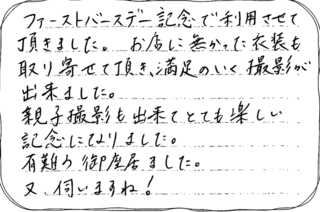 ファーストバースデー記念で利用させて
頂きました。 お店に無かった衣装も
取り寄せて頂き、満足のいく撮影が
出来ました。
親子撮影も出来てとても楽しい
記念になりました。
有難う御座居ました。
又、伺いますね!